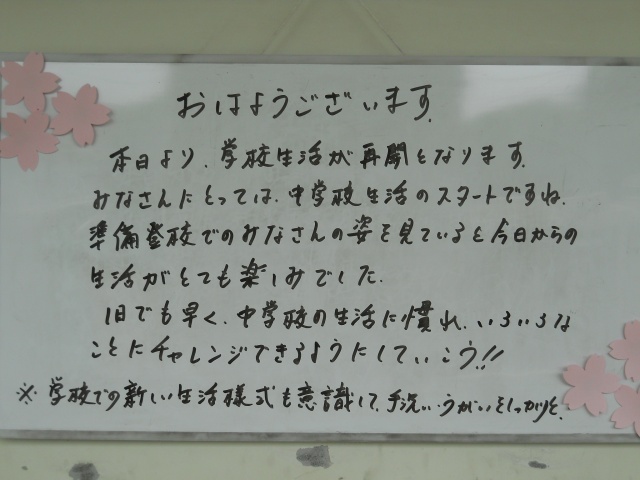 おはようございます。
本日より、学校生活が再開となります。
みなさんにとっては、中学校生活のスタートですね。
準備登校でのみなさんの姿を見ていると今日からの
生活がとても楽しみでした。
1日でも早く、中学校の生活に慣れ、いろいろな
ことにチャレンジできるようにしていこう!!
※学校での新しい生活様式も意識して、手洗い、うがいをしっかりと。